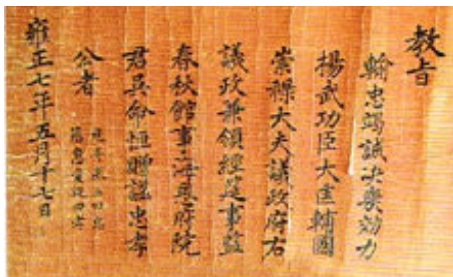 教旨
輸忠竭誠決奬効力
揚武功臣大匡輔國
崇祿大夫議政府右
議政兼領經筵事監
春秋館事海恩府院
君吳命恒贈諡忠孝
公者
雍正七年五月十七日